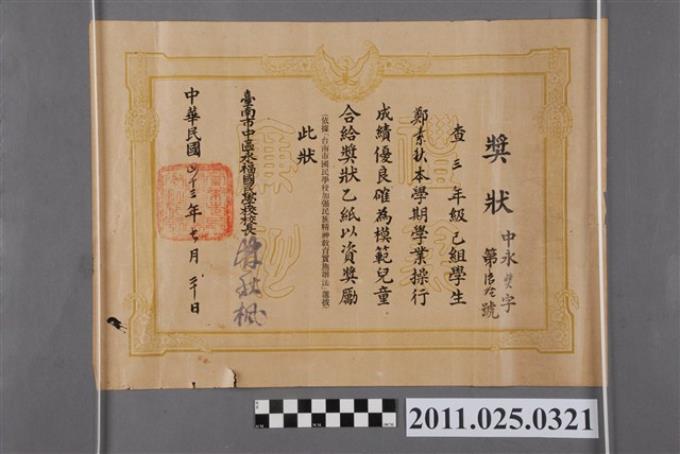 獎狀
中永獎字
第 號
查三年級己組學生
鄭素秋本學期學業操行
成績優良確為模範兒童
合給獎狀乙紙以資獎勵
(依據「台南市國民學校加強民族精神教育實施辦法」選拔)
此狀
臺南市中區永福國民學校校長
中華民國四十三年七月 日
2011.025.0321